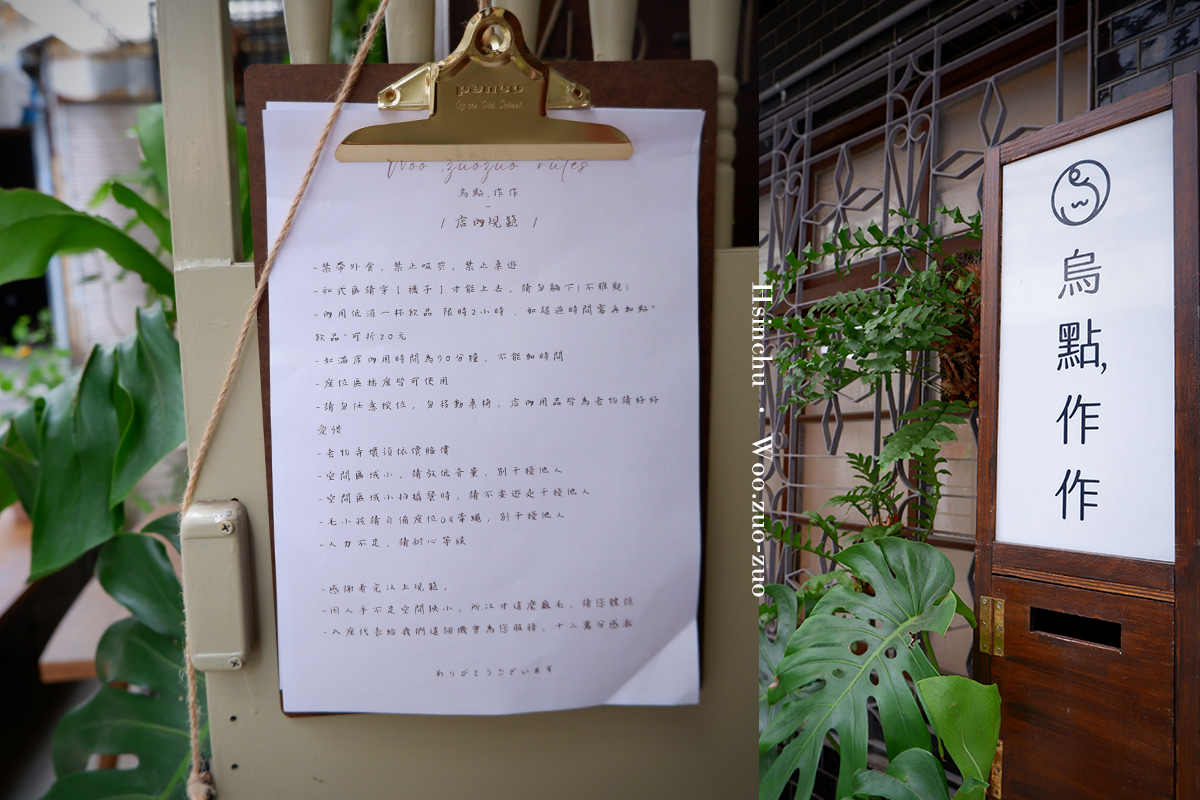 penco
Of the Old School.
Woo.zuozuo rules
烏點,作作
-
/ 店內規範 /
-禁帶外食, 禁止吸菸, 禁止桌遊
-和式區請穿[襪子]才能上去, 請勿躺下(不雅觀)
-內用低消一杯飲品 限時2小時 , 如超過時間需再加點"
飲品"可折20元
-如滿店內用時間為90分鐘, 不能加時間
-座位區插座皆可使用
-請勿任意換位, 勿移動桌椅, 店內用品皆為老物請好好
愛惜
-老物弄壞須依價賠償
-空間區域小, 請放低音量, 別干擾他人
-空間區域小拍攝餐時, 請不要遊走干擾他人
-毛小孩請自備座位OR牽繩, 別干擾他人
-人力不足, 請耐心等候
-感謝看完以上規範,
-因人手不足空間狹小, 所以才這麼龜毛, 請您體諒
-入座代表給我們這個機會為您服務, 十二萬分感激
ありがとうございます
Hsinchu · Woo.zuo-zuo
烏點,作作